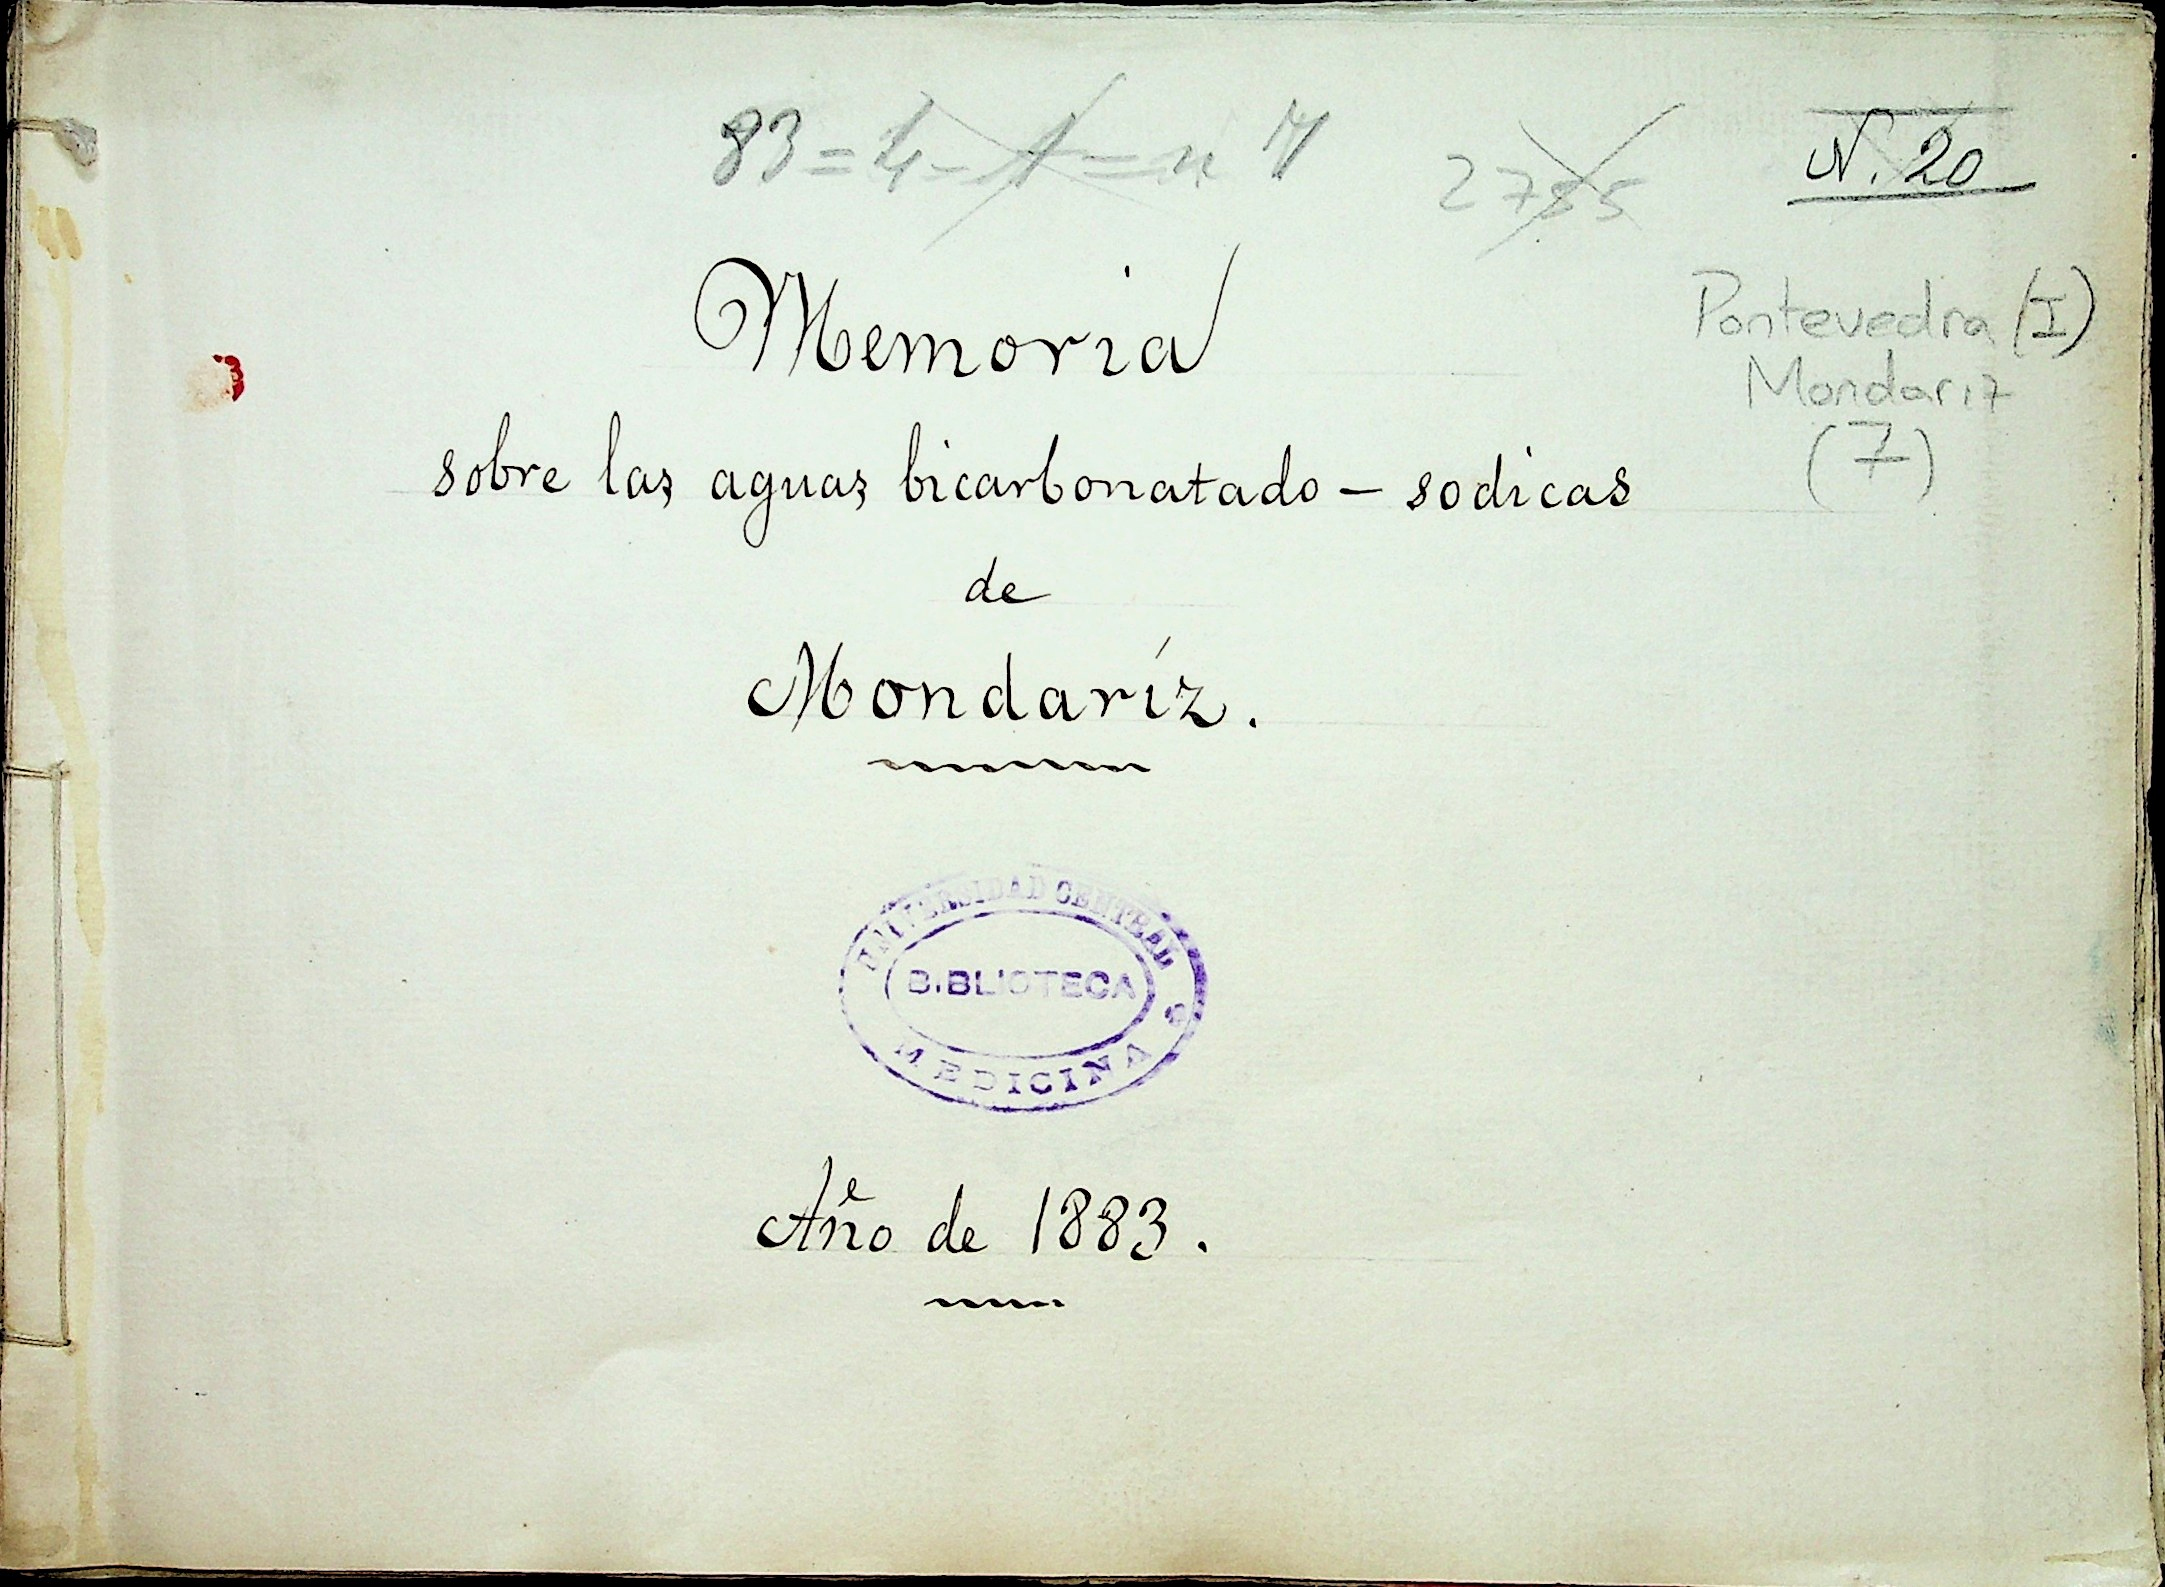 83 =
2785
N. 20
Memoria
Pontevedra (I)
Mondariz
(7)
sobre las aguas bicarbonatado - sodicas
de
Mondaríz.
UNIVERSIDAD CENTRAL
BIBLIOTECA
MEDICINA
Año de 1883.